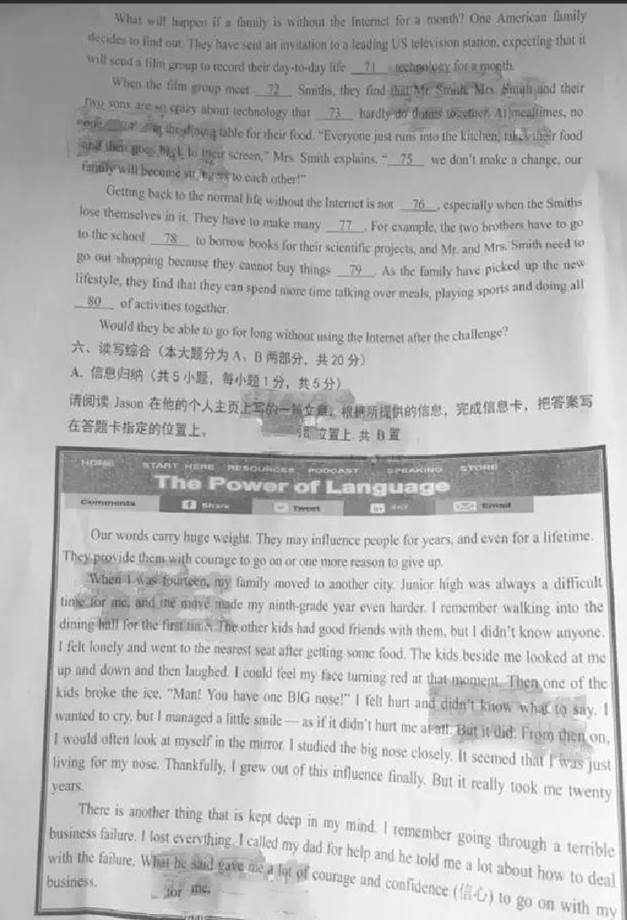 What will happen if a family is without the Internet for a month? One American family
decides to find out. They have sent an invitation to a leading US television station, expecting that it
will send a film group to record their day-to-day life 71 technology for a month.
When the film group meet 72 Smiths, they find that Mr. Smith, Mrs. Smith and their
two sons are so crazy about technology that 73 hardly do things together. At mealtimes, no
the dining table for their food. "Everyone just runs into the kitchen, takes their food
and then goes back to their screen," Mrs. Smith explains. " 75 we don't make a change, our
family will become strangers to each other!"
Getting back to the normal life without the Internet is not 76 , especially when the Smiths
lose themselves in it. They have to make many 77 . For example, the two brothers have to go
to the school 78 to borrow books for their scientific projects, and Mr. and Mrs. Smith need to
go out shopping because they cannot buy things 79 . As the family have picked up the new
lifestyle, they find that they can spend more time talking over meals, playing sports and doing all
80 of activities together.
Would they be able to go for long without using the Internet after the challenge?
六、读写综合（本大题分为 A、B 两部分，共 20 分）
A．信息归纳（共 5 小题，每小题 1 分，共 5 分）
请阅读 Jason 在他的个人主页上写的一篇文章，根据所提供的信息，完成信息卡，把答案写
在答题卡指定的位置上。 位置上 共 B 置
HOME START HERE RESOURCES PODCAST SPEAKING STORE
The Power of Language
Comments Share Tweet Email
Our words carry huge weight. They may influence people for years, and even for a lifetime.
They provide them with courage to go on or one more reason to give up.
When I was fourteen, my family moved to another city. Junior high was always a difficult
time for me, and the move made my ninth-grade year even harder. I remember walking into the
dining hall for the first time. The other kids had good friends with them, but I didn't know anyone.
I felt lonely and went to the nearest seat after getting some food. The kids beside me looked at me
up and down and then laughed. I could feel my face turning red at that moment. Then one of the
kids broke the ice, "Man! You have one BIG nose!" I felt hurt and didn't know what to say. I
wanted to cry, but I managed a little smile — as if it didn't hurt me at all. But it did. From then on,
I would often look at myself in the mirror. I studied the big nose closely. It seemed that I was just
living for my nose. Thankfully, I grew out of this influence finally. But it really took me twenty
years.
There is another thing that is kept deep in my mind. I remember going through a terrible
business failure. I lost everything. I called my dad for help and he told me a lot about how to deal
with the failure. What he said gave me a lot of courage and confidence (信心) to go on with my
business. for me.